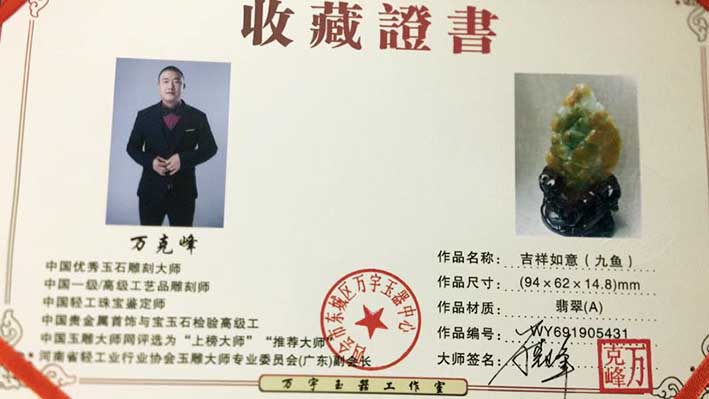 收藏證書
万克峰
中国优秀玉石雕刻大师
中国一级/高级工艺品雕刻师
中国轻工珠宝鉴定师
中国贵金属首饰与宝玉石检验高级工
中国玉雕大师网评选为“上榜大师”“推荐大师”
河南省轻工业行业协会玉雕大师专业委员会(广东)副会长
四会市东城区万宇玉器中心
作品名称：吉祥如意（九鱼）
作品尺寸：(94×62×14.8)mm
作品材质：翡翠(A)
作品编号：WY691905431
大师签名：万克峰
万克峰
万宇玉器工作室